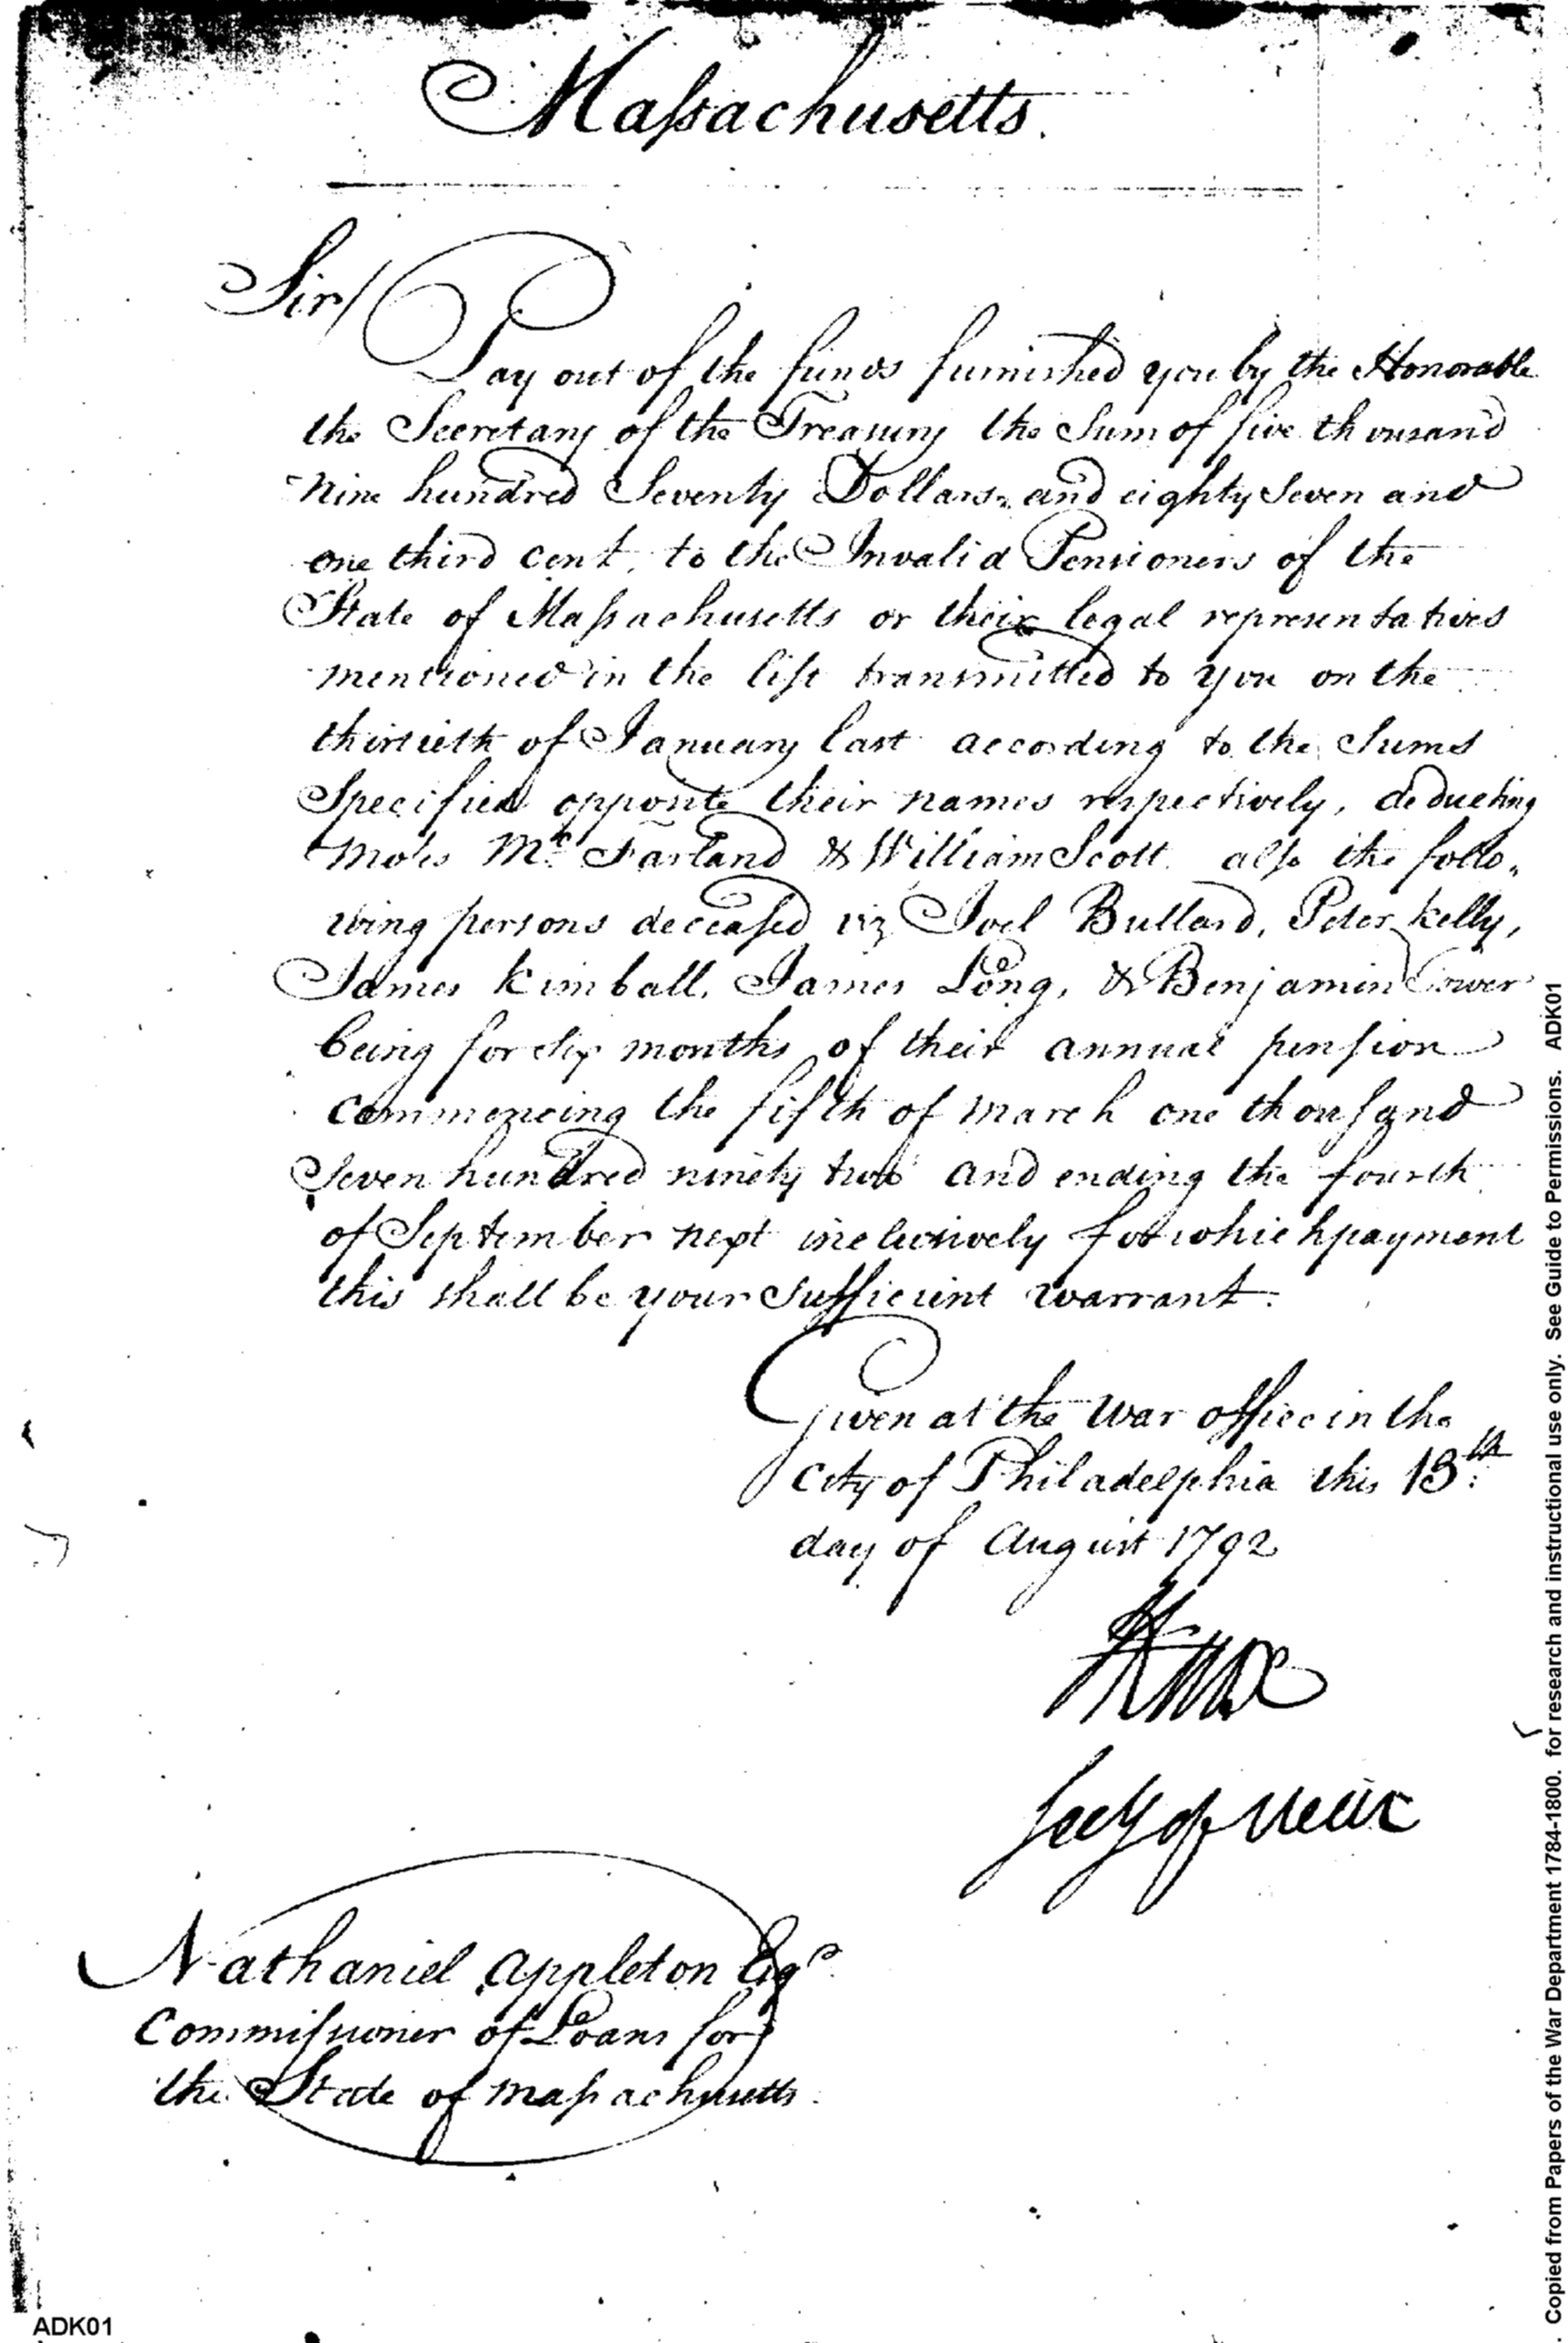 Massachusetts.
Sir/
Pay out of the funds furnished you by the Honorable
the Secretary of the Treasury the Sum of five thousand
nine hundred Seventy Dollars, and eighty Seven and
one third cent, to the Invalid Pensioners of the
State of Massachusetts or their legal representatives
mentioned in the list transmitted to you on the
thirtieth of January last according to the Sums
Specified opposite their names respectively, deducting
Moses Mc Farland & William Scott. also the follo,,
wing persons deceased viz Joel Bullard, Peter Kelly,
James Kimball, James Long, & Benjamin Tower
being for Six months of their annual pension
commencing the fifth of March one thousand
Seven hundred ninety two and ending the fourth
of September next inclusively for which payment
this shall be your Sufficient warrant.
Given at the War office in the
City of Philadelphia this 13th
day of August 1792
HKnox
Secy of War
Nathaniel Appleton Esqr
Commissioner of Loans for
the State of Massachusetts.
ADK01
. Copied from Papers of the War Department 1784-1800. for research and instructional use only. See Guide to Permissions. ADK01